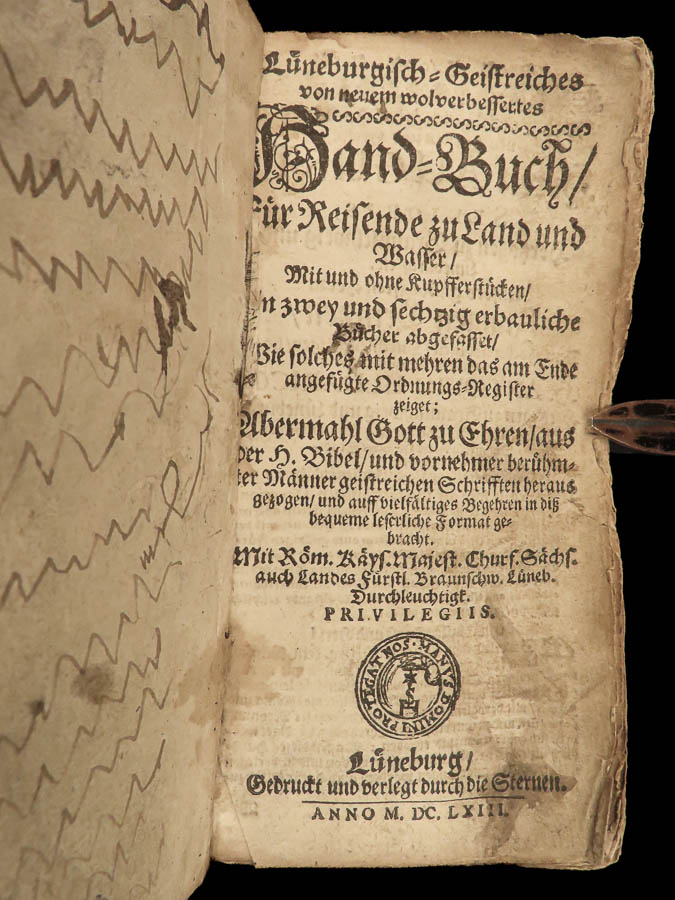 Lüneburgisch-Geistreiches
von neuem wolverbessertes
Hand-Buch/
Für Reisende zu Land und
Wasser/
Mit und ohne Kupfferstücken/
In zwey und sechtzig erbauliche
Bücher abgefasset/
Wie solches mit mehren das am Ende
angefügte Ordnungs-Register
zeiget;
Abermahl Gott zu Ehren/aus
der H. Bibel/und vornehmer berühm-
ter Männer geistreichen Schrifften heraus
gezogen/und auff vielfältiges Begehren in diß
bequeme leserliche Format ge-
bracht.
Mit Röm. Käys. Majest. Churf. Sächs.
auch Landes Fürstl. Braunschw. Lüneb.
Durchleuchtigk.
PRIVILEGIIS.
MANUS DOMINI PROTEGAT NOS
Lüneburg/
Gedruckt und verlegt durch die Sternen.
ANNO M. DC. LXIII.